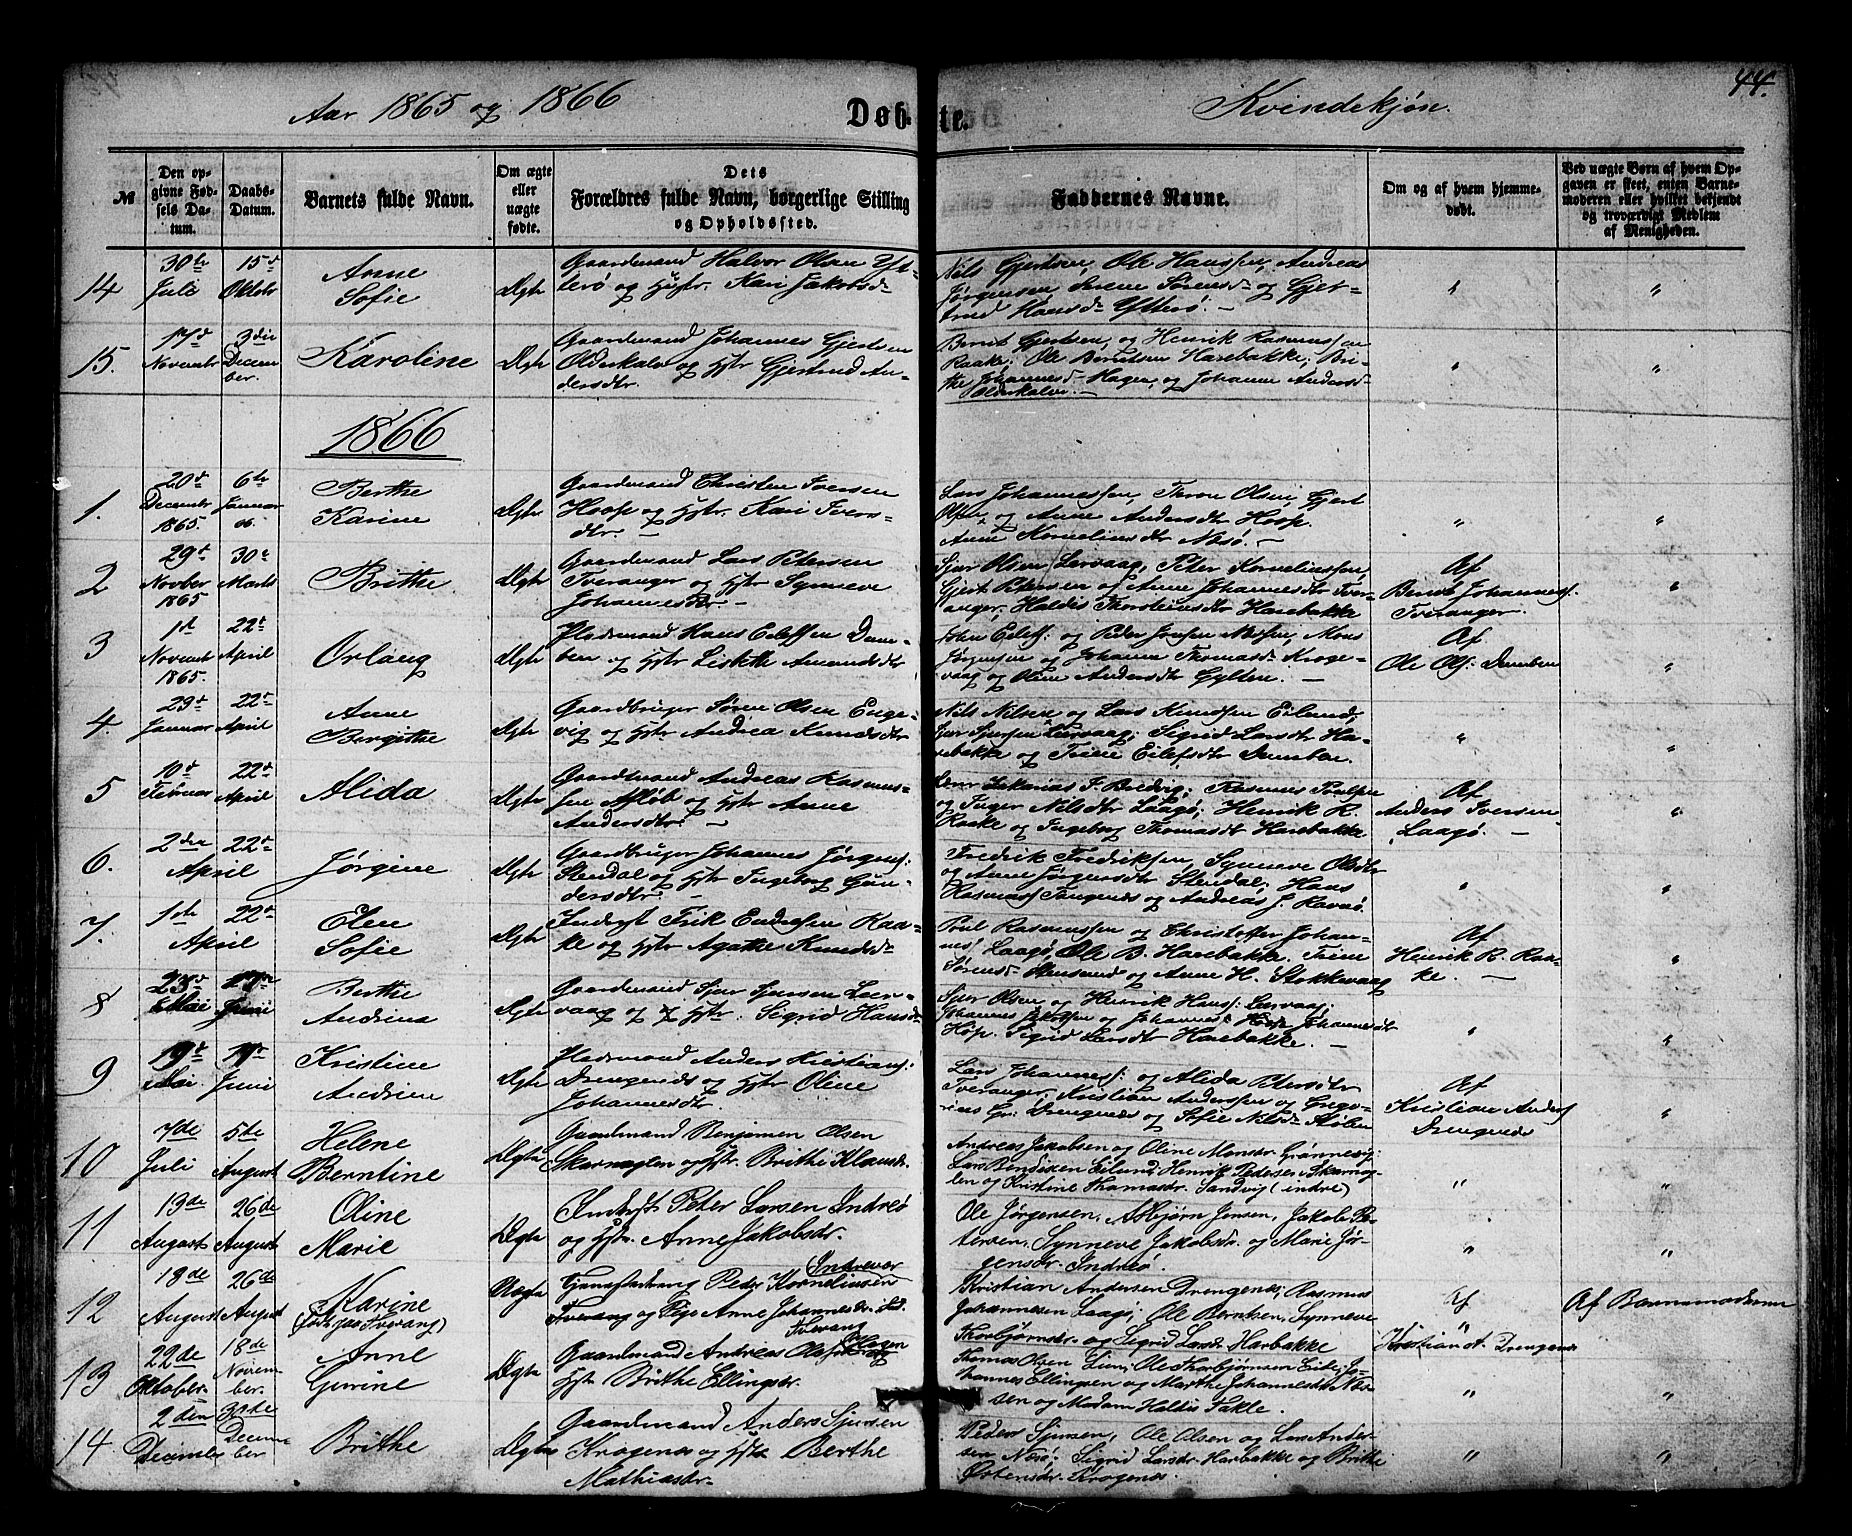 44.
Aar 1865 og 1866 Døbte. Kvindekjøn.
№ Den opgivne Fødsels Datum. Daabs-Datum. Barnets fulde Navn. Om ægte eller uægte fødte. Dets Forældres fulde Navn, borgerlige Stilling og Opholdssted. Faddernes Navne. Om og af hvem hjemmedøbt. Ved uægte Børn af hvem Opgaven er skeet, enten Barnemoderen eller hvilket bekjendt og troværdigt Medlem af Menigheden.
14 30te Juli 15d Oktobr Anne Sofie Ægte
Gaardmand Halvor Olsen Yt-
terø og Hustr. Kari Jakobsd
Nils Gjertsen, Ole Hanssen, Andreas
Jørgensen Serene Sørensd og Gjer-
trud Hansdr Ytterø. — " "
15. 17d Novembr 3die December. Karoline Ægte
Gaardmand Johannes Gjertsen
Olderkalven og Hstr Gjertrud An-
dersdtr.
Bernt Gjertsen, og Henrik Rasmussen
Raake; Ole Berntsen Harebakke; Bri-
the Johannesd Hagen, og Johanne Andersd
Olderkalven. — " "
1866
1. 20d Decembr 1865. 6te Januar 66. Berthe Karine Ægte
Gaardmand Christen Iversen
Hoop og Hstr. Kari Ivers-
dtr. —
Lars Johannessen, Thron Olsen, Gjert
Olsen, og Anne Andersdtr Hoop.
Anne Kornelius dtr Nesø. — " "
2 29d Novber 1865 30e Marts Brithe Ægte
Gaardmand Lars Petersen
Tveranger og Hstr Synneve
Johannesdtr —
Sjur Olsen Lervaag, Peter Korneliussen,
Gjert Petersen og Anne Johannesdtr Tver-
anger, Haldis Thorsteinsdtr Harebakke
Af
Bernt Johanness.
Tveranger. "
3 1d Novembr 1865. 22d April Orlaug Ægte
Pladsmand Hans Eilefsen Dum-
ben og Hstr Liskethe Amundsdtr
John Eilefs. og Peder Jonsen Mosen, Mons
Jørgensen og Johanne Thomasd Kroge-
vaag og Oline Andersdtr Gylten. —
Af
Ole Ols. Dumben "
4. 29d Januar 22d April Anne Bergithe Ægte
Gaardbruger Søren Olsen Enge-
vig og Hstr Andrea Knudsdtr
Nils Nilsen og Lars Knudsen Eilund,
Sjur Sjursen Lervaag; Sigrid Larsdtr Ha-
rebakke og Trine Eilefsdtr Dumben. " "
5 10d Februar 22d April Alida Ægte
Gaardmand Andreas Rasmus-
sen Afløb og Hstr Anne
Andersdtr. —
Sakarias F. Bredvig; Rasmus Poulsen
og Inger Nilsdtr Laagø; Henrik R.
Raake og Ingeborg Thomasdtr Harebakke
Af
Anders Iversen
Laagø. — "
6. 2den April 22d Jørgine Ægte
Gaardbruger Johannes Jørgens.
Stendal og Hstr Ingeborg Gun-
dersdtr. —
Fredrik Fredriksen, Synneve Olsdtr
og Anne Jørgensdtr Stendal; Hans
Rasmuss Tangenes og Andreas J. Ravnø. " "
7. 1ste April 22d Elen Sofie Ægte
Inderst Erik Endresen Raa-
ke og Hstr Agathe Knudsd
Poul Rasmussen og Christoffer Johan-
nes. Laagø, Ole B. Harebakke. Trine
Sørensd Stensund og Anne H. Stokkevaag
Af
Henrik R. Raa-
ke. — "
8 23d Mai 17de Juni Berthe Andrina Ægte
Gaardmand Sjur Sjursen Ler-
vaag og Hstr. Sigrid Hansdr
Sjur Olsen og Henrik Hanss. Lervaag;
Johannes Jakobsen og Johannes Hope Johannesdtr
Hop. Sigrid Larsdtr Harebakke. — " "
9 19d Mai. 17de Juni Kristine Andrine Ægte
Pladsmand Anders Kristians.
Drengenes og Hstr Oline
Johannesdtr.
Lars Johanness. og Alida Petersdtr
Tveranger, Kristian Anderssen og Grego-
rius Gr. Drengenes og Sofie Nilsd Støben
Af
Kristian Anders
Drengenes "
10 7de Juli 5te August Helene Berntine Ægte
Gaardmand Benjamin Olsen
Skarnaglen og Hstr. Brithe Klausdr.
Andreas Jakobsen og Oline Monsdr. Grønnevig;
Lars Bendixen Eilund; Henrik Pedersen Skarnag-
len og Kristine Thomasdr. Sandvig (indre) " "
11 19de August 26de August Oline Marie Ægte
Inderst Peter Larsen Indreø
og Hstr. Anne Jakobsdr.
Ole Jørgensen, Asbjørn Jensen, Jakob Pe-
tersen, Synneve Jakobsdr. og Marie Jør-
gensdr. Indreø. " "
12 18de August 26de August Karine (født paa Tverang) Uægte
Indrevær
Ungkarl Peder Korneliussen
Tverang og Pige Anne Johannesdr.
Tverang
Kristian Andersen Drengenes; Rasmus
Johannesen Laagø; Ole Berntsen, Synneve
Thorbjørnsdr. og Sigrid Larsdr Harbakke
Af
Kristian A. Drengenes
Af Barnemoderen
13 22de Oktober. 18de November. Anne Gurine Ægte
Gaardmand Andreas Olsen Hagen og
Hstr Brithe Ellingsdr.
Thomas Olsen Lun; Ole Thorbjørnsen Eide, Jo-
hannes Ellingsen og Marthe Johannesdr Ness-
sen og Madam Haldis Takle. " "
14 2den December 30te December Brithe Ægte
Gaardmand Anders Sjursen
Krogenes og Hstr Berthe
Mathiasdr.
Peder Sjursen, Ole Olsen og Lars Ander-
sen Nesø; Sigrid Larsdr. Harbakke og Brithe
Østensdr. Krogenes. " "